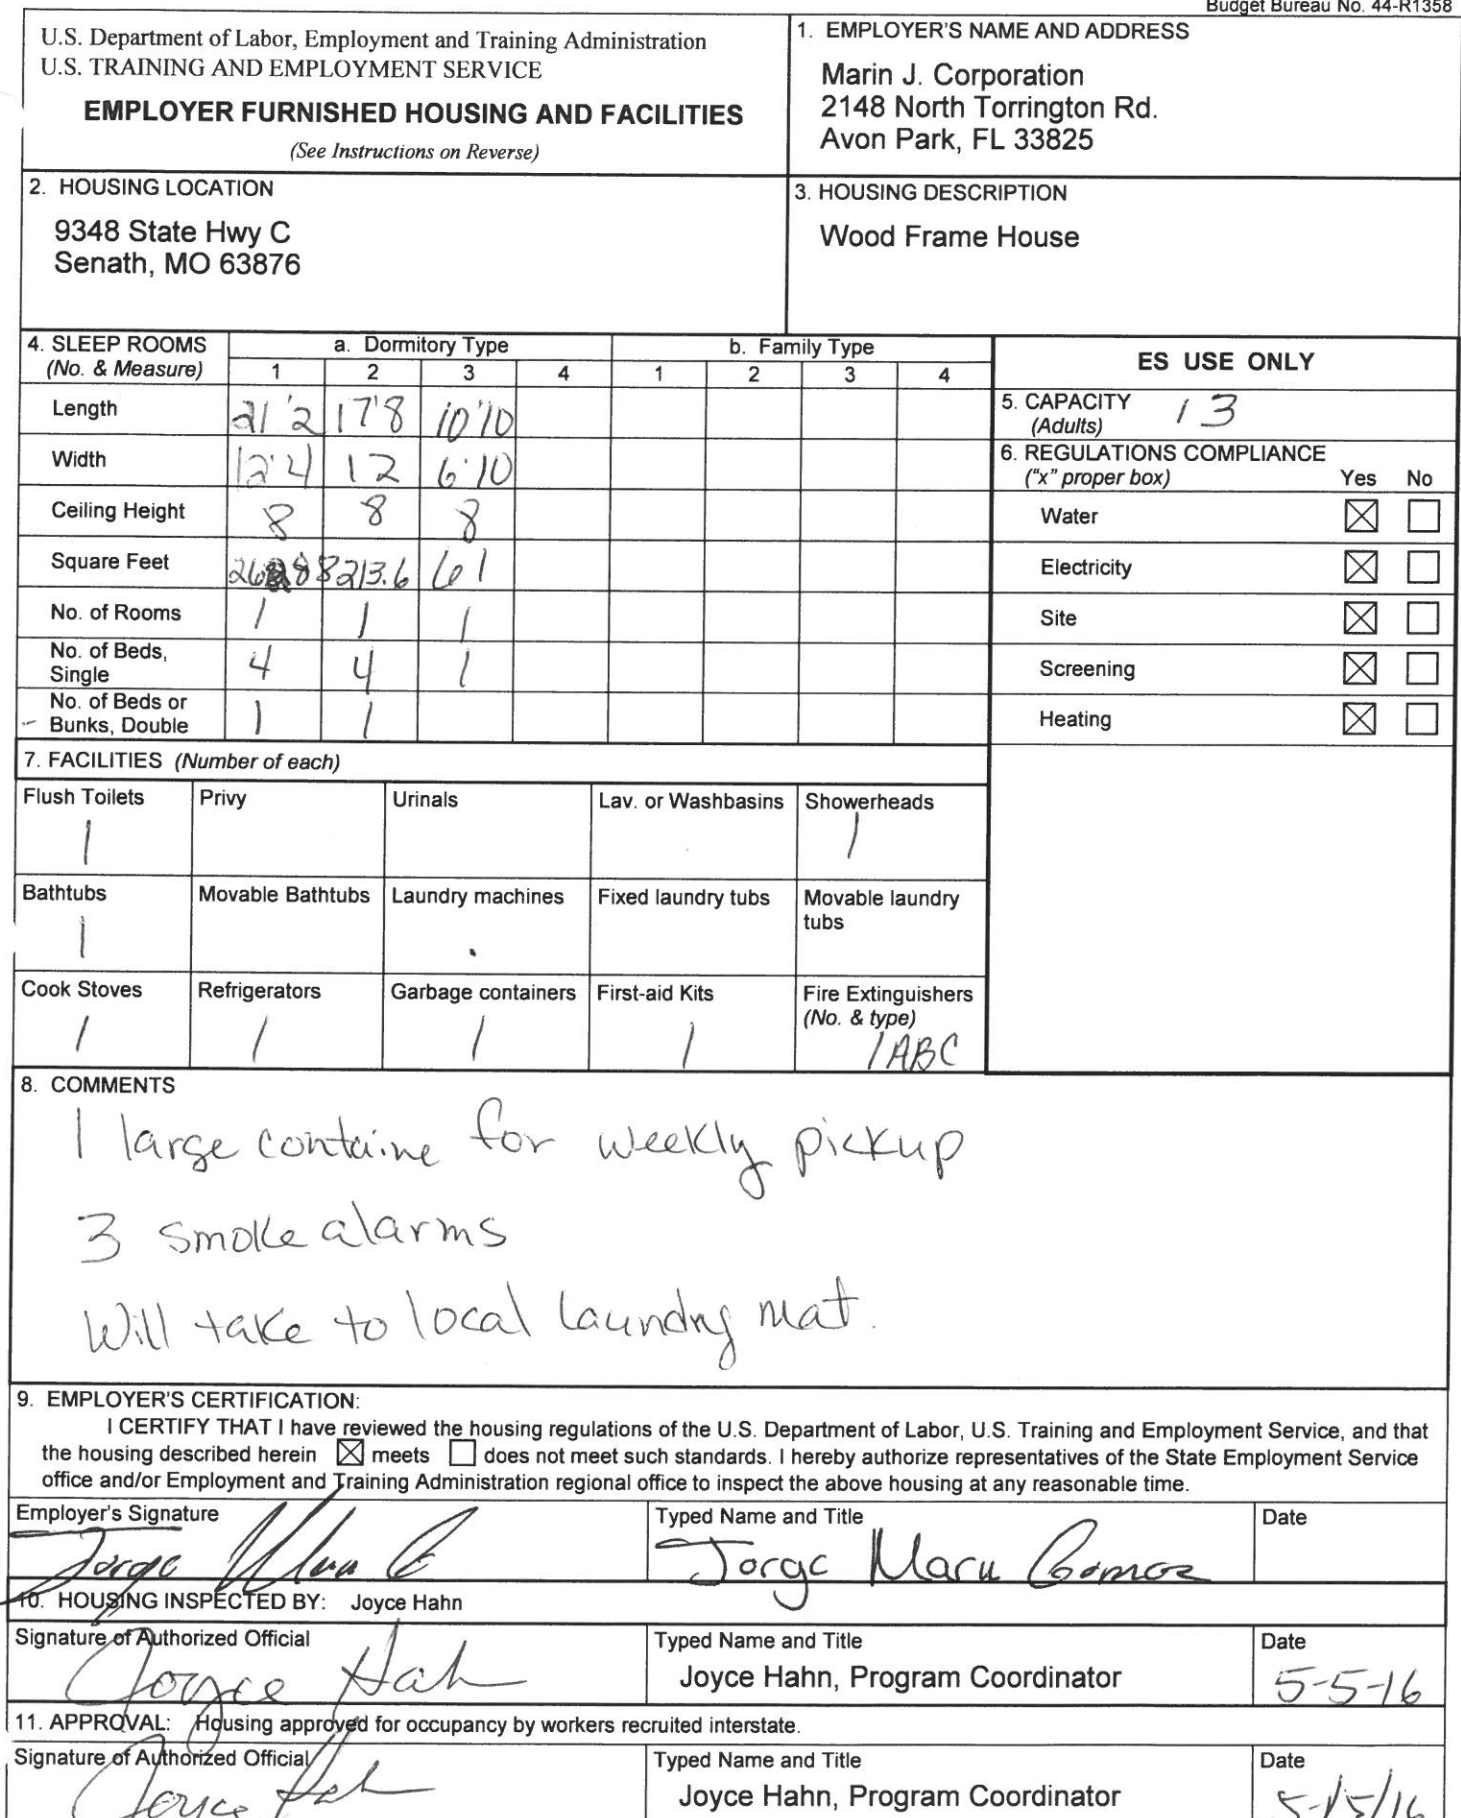 Budget Bureau No. 44-R1358
U.S. Department of Labor, Employment and Training Administration
U.S. TRAINING AND EMPLOYMENT SERVICE
EMPLOYER FURNISHED HOUSING AND FACILITIES
(See Instructions on Reverse)
1. EMPLOYER'S NAME AND ADDRESS
Marin J. Corporation
2148 North Torrington Rd.
Avon Park, FL 33825
2. HOUSING LOCATION
9348 State Hwy C
Senath, MO 63876
3. HOUSING DESCRIPTION
Wood Frame House
4. SLEEP ROOMS
(No. & Measure)
a. Dormitory Type
b. Family Type
1 2 3 4 1 2 3 4
Length 21'2 17'8 10'10
Width 12'4 12 6'10
Ceiling Height 8 8 8
Square Feet 213.6 61
No. of Rooms 1 1 1
No. of Beds,
Single 4 4 1
No. of Beds or
Bunks, Double 1 1
ES USE ONLY
5. CAPACITY 13
(Adults)
6. REGULATIONS COMPLIANCE
("x" proper box) Yes No
Water
Electricity
Site
Screening
Heating
7. FACILITIES (Number of each)
Flush Toilets Privy Urinals Lav. or Washbasins Showerheads
1 1
Bathtubs Movable Bathtubs Laundry machines Fixed laundry tubs Movable laundry
tubs
1
Cook Stoves Refrigerators Garbage containers First-aid Kits Fire Extinguishers
(No. & type)
1 1 1 1 1 ABC
8. COMMENTS
1 large containe for weekly pickup
3 smoke alarms
Will take to local laundry mat.
9. EMPLOYER'S CERTIFICATION:
I CERTIFY THAT I have reviewed the housing regulations of the U.S. Department of Labor, U.S. Training and Employment Service, and that
the housing described herein meets does not meet such standards. I hereby authorize representatives of the State Employment Service
office and/or Employment and Training Administration regional office to inspect the above housing at any reasonable time.
Employer's Signature Typed Name and Title Date
Jorge Jorge Marin Gomez
10. HOUSING INSPECTED BY: Joyce Hahn
Signature of Authorized Official Typed Name and Title Date
Joyce Hah Joyce Hahn, Program Coordinator 5-5-16
11. APPROVAL: Housing approved for occupancy by workers recruited interstate.
Signature of Authorized Official Typed Name and Title Date
Joyce Hah Joyce Hahn, Program Coordinator